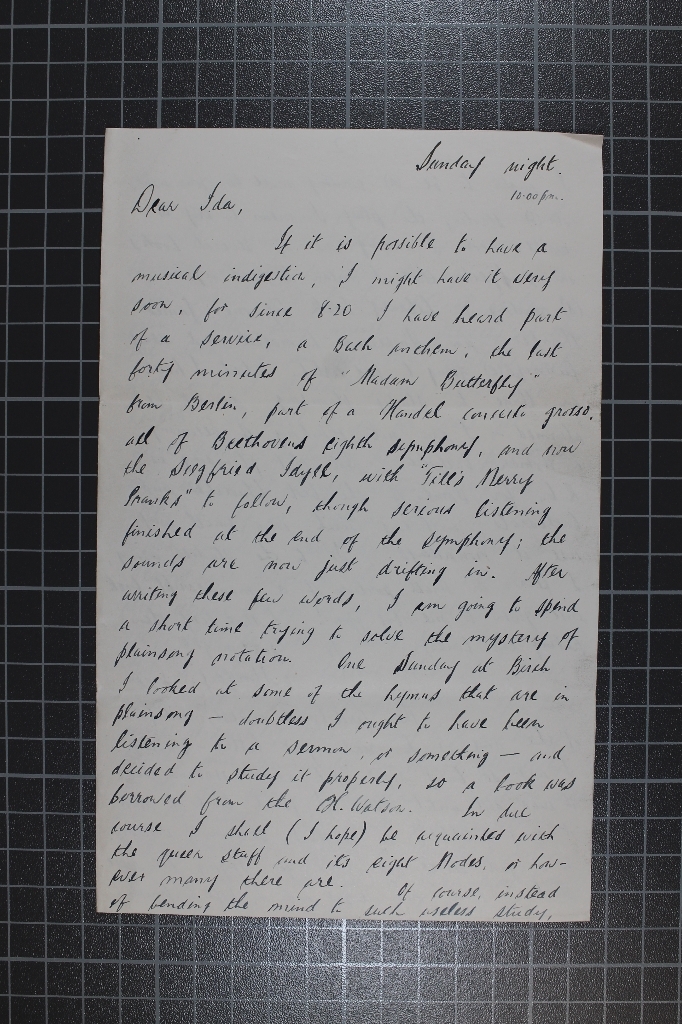 Sunday night.
10.00pm.
Dear Ida,
If it is possible to have a
musical indigestion, I might have it very
soon, for since 8.20 I have heard part
of a service, a Bach anthem, the last
forty minutes of "Madam Butterfly"
from Berlin, part of a Handel concerto grosso,
all of Beethovens eighth symphony, and now
the Siegfried Idyll, with "Till's Merry
Pranks" to follow, though serious listening
finished at the end of the symphony; the
sounds are now just drifting in. After
writing these few words, I am going to spend
a short time trying to solve the mystery of
plainsong notation. One Sunday at Birch
I looked at some of the hymns that are in
plainsong — doubtless I ought to have been
listening to a sermon, or something — and
decided to study it properly, so a book was
borrowed from the H. Watson. In due
course I shall (I hope) be acquainted with
the queer staff and its eight Modes, or how-
ever many there are. Of course, instead
of bending the mind to such useless study,